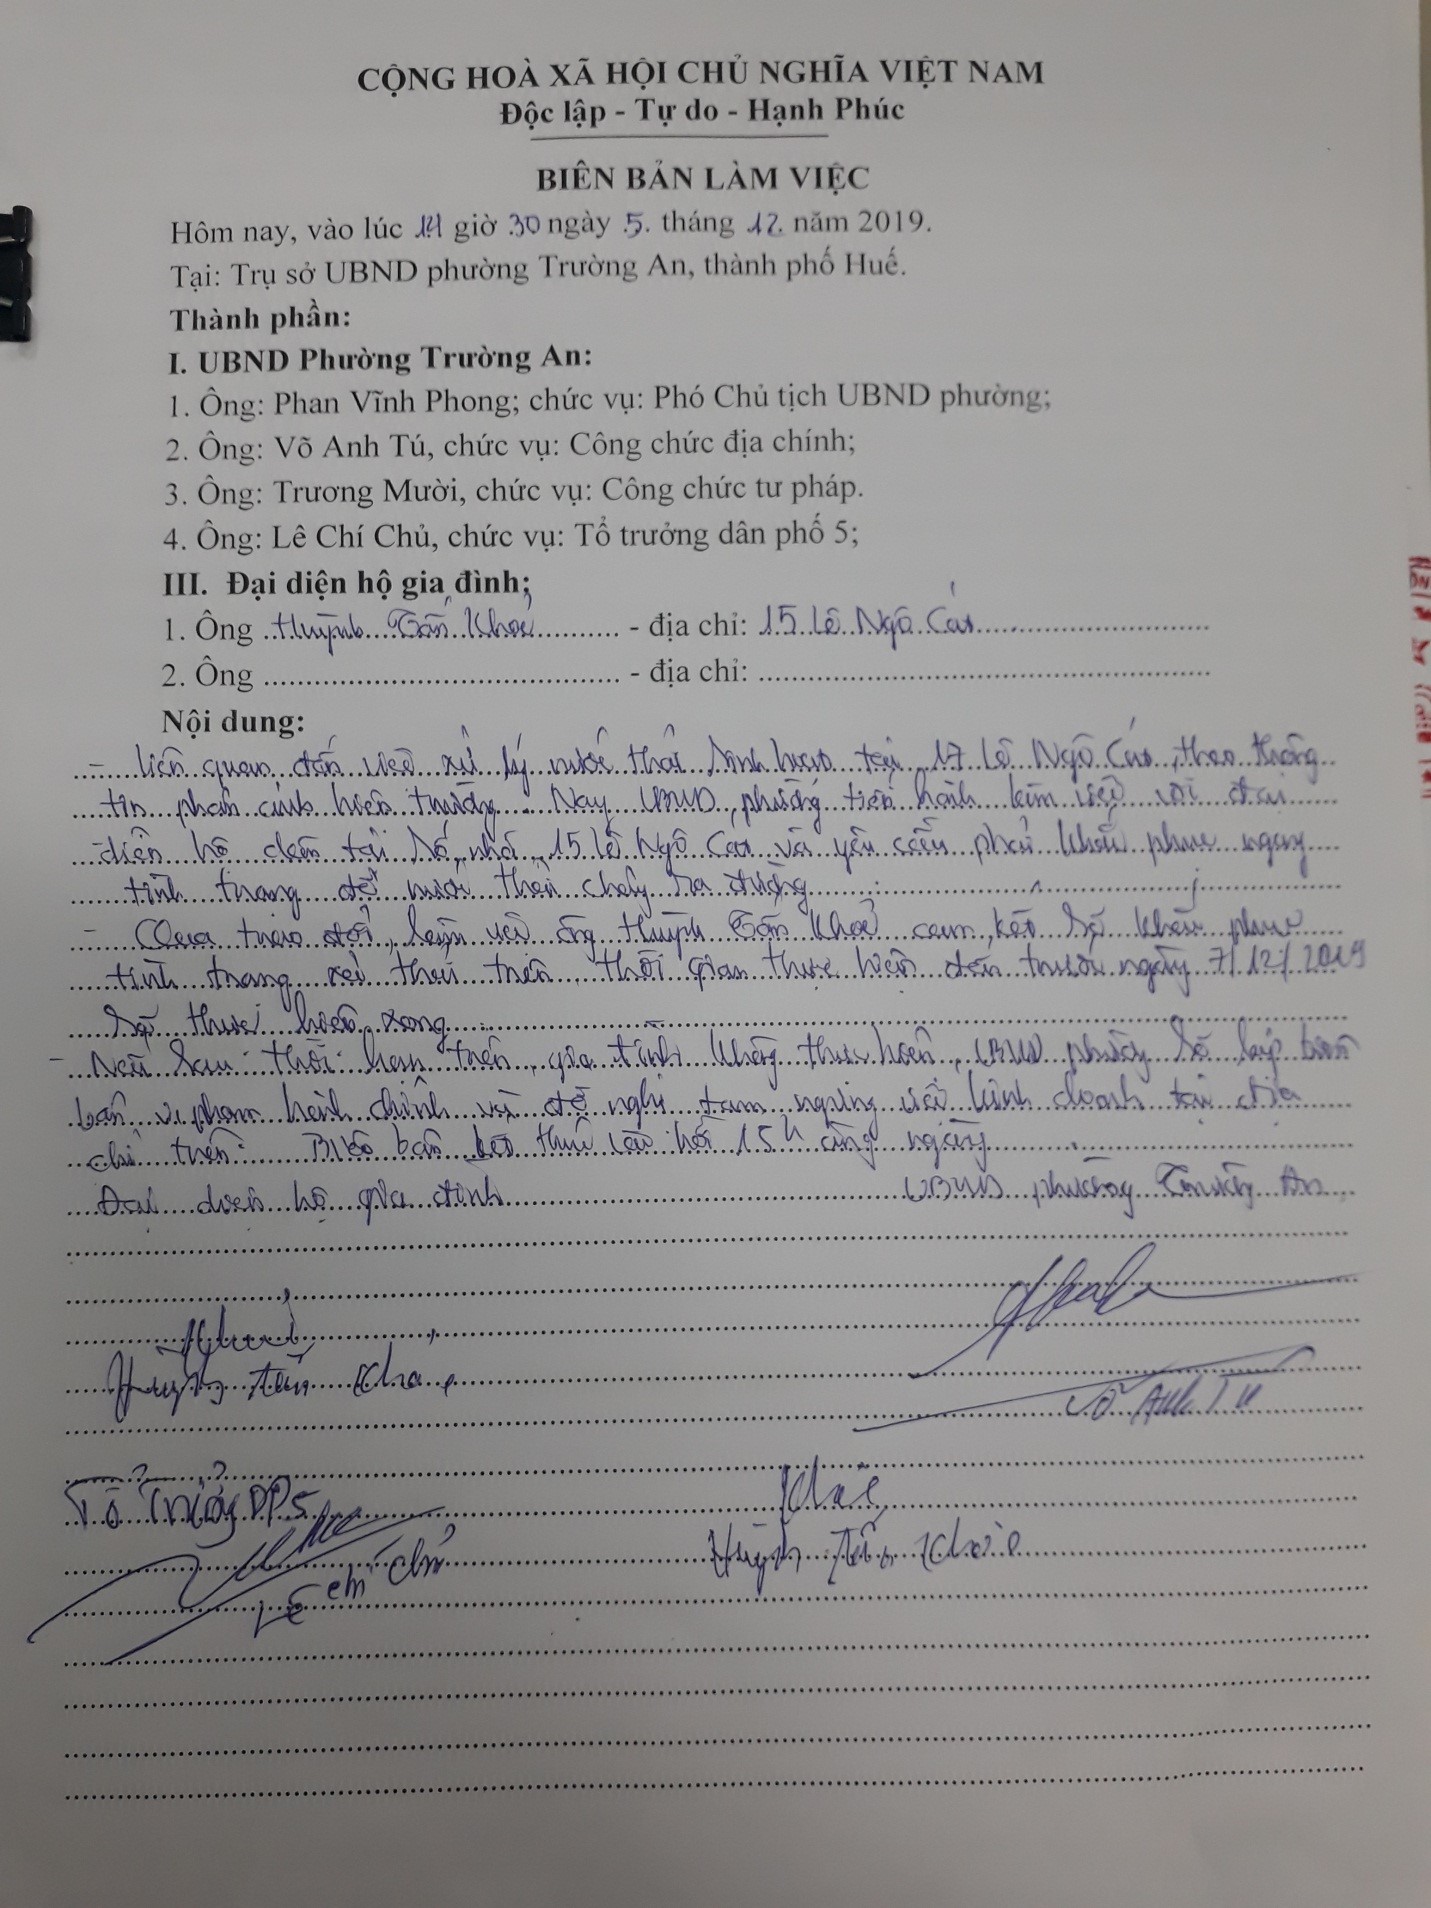 CỘNG HOÀ XÃ HỘI CHỦ NGHĨA VIỆT NAM
Độc lập - Tự do - Hạnh Phúc
BIÊN BẢN LÀM VIỆC
Hôm nay, vào lúc 14 giờ 30 ngày 5 tháng 12 năm 2019.
Tại: Trụ sở UBND phường Trường An, thành phố Huế.
Thành phần:
I. UBND Phường Trường An:
1. Ông: Phan Vĩnh Phong; chức vụ: Phó Chủ tịch UBND phường;
2. Ông: Võ Anh Tú, chức vụ: Công chức địa chính;
3. Ông: Trương Mười, chức vụ: Công chức tư pháp.
4. Ông: Lê Chí Chủ, chức vụ: Tổ trưởng dân phố 5;
III. Đại diện hộ gia đình;
1. Ông Huỳnh Tấn Khoẻ - địa chỉ: 15 Lê Ngô Cát
2. Ông - địa chỉ:
Nội dung:
- Liên quan đến việc xử lý nước thải sinh hoạt tại 17 Lê Ngô Cát, theo thông
tin phản ánh hiện trường. Nay UBND phường tiến hành làm việc với đại
diện hộ dân tại số nhà 15 Lê Ngô Cát và yêu cầu phải khắc phục ngay
tình trạng để nước thải chảy ra đường.
- Qua trao đổi, làm việc ông Huỳnh Tấn Khoẻ cam kết sẽ khắc phục
tình trạng xả thải trên, thời gian thực hiện đến trước ngày 7/12/2019
sẽ thực hiện xong.
- Nếu sau thời hạn trên, gia đình không thực hiện, UBND phường sẽ lập biên
bản vi phạm hành chính và đề nghị tạm ngừng việc kinh doanh tại địa
chỉ trên. Biên bản kết thúc vào hồi 15h cùng ngày
Đại diện hộ gia đình UBND phường Trường An
Huỳnh Tấn Khoẻ
Võ Anh Tú
Tổ Trưởng DP5
Lê Chí Chủ
Huỳnh Tấn Khoẻ